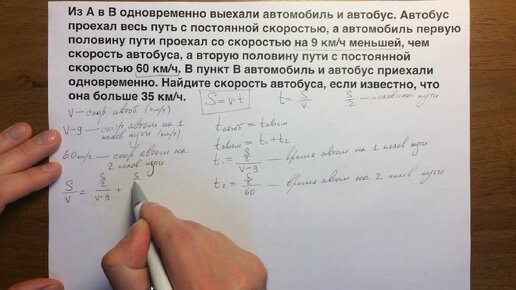 Из А в В одновременно выехали автомобиль и автобус. Автобус
проехал весь путь с постоянной скоростью, а автомобиль первую
половину пути проехал со скоростью на 9 км/ч меньшей, чем
скорость автобуса, а вторую половину пути с постоянной
скоростью 60 км/ч. В пункт В автомобиль и автобус приехали
одновременно. Найдите скорость автобуса, если известно, что
она больше 35 км/ч.
S = v · t
t = S/v
S/2 — половина пути
v — скор автоб (км/ч)
v-9 — скор автом на 1
полов пути (км/ч)
60 км/ч — скор автом на
2 полов пути
S/v = (S/2)/(v-9) + S
t автоб = t автом
t автом = t₁ + t₂
t₁ = (S/2)/(v-9) — время автом на 1 полов пути
t₂ = (S/2)/60 — время автом на 2 полов пути